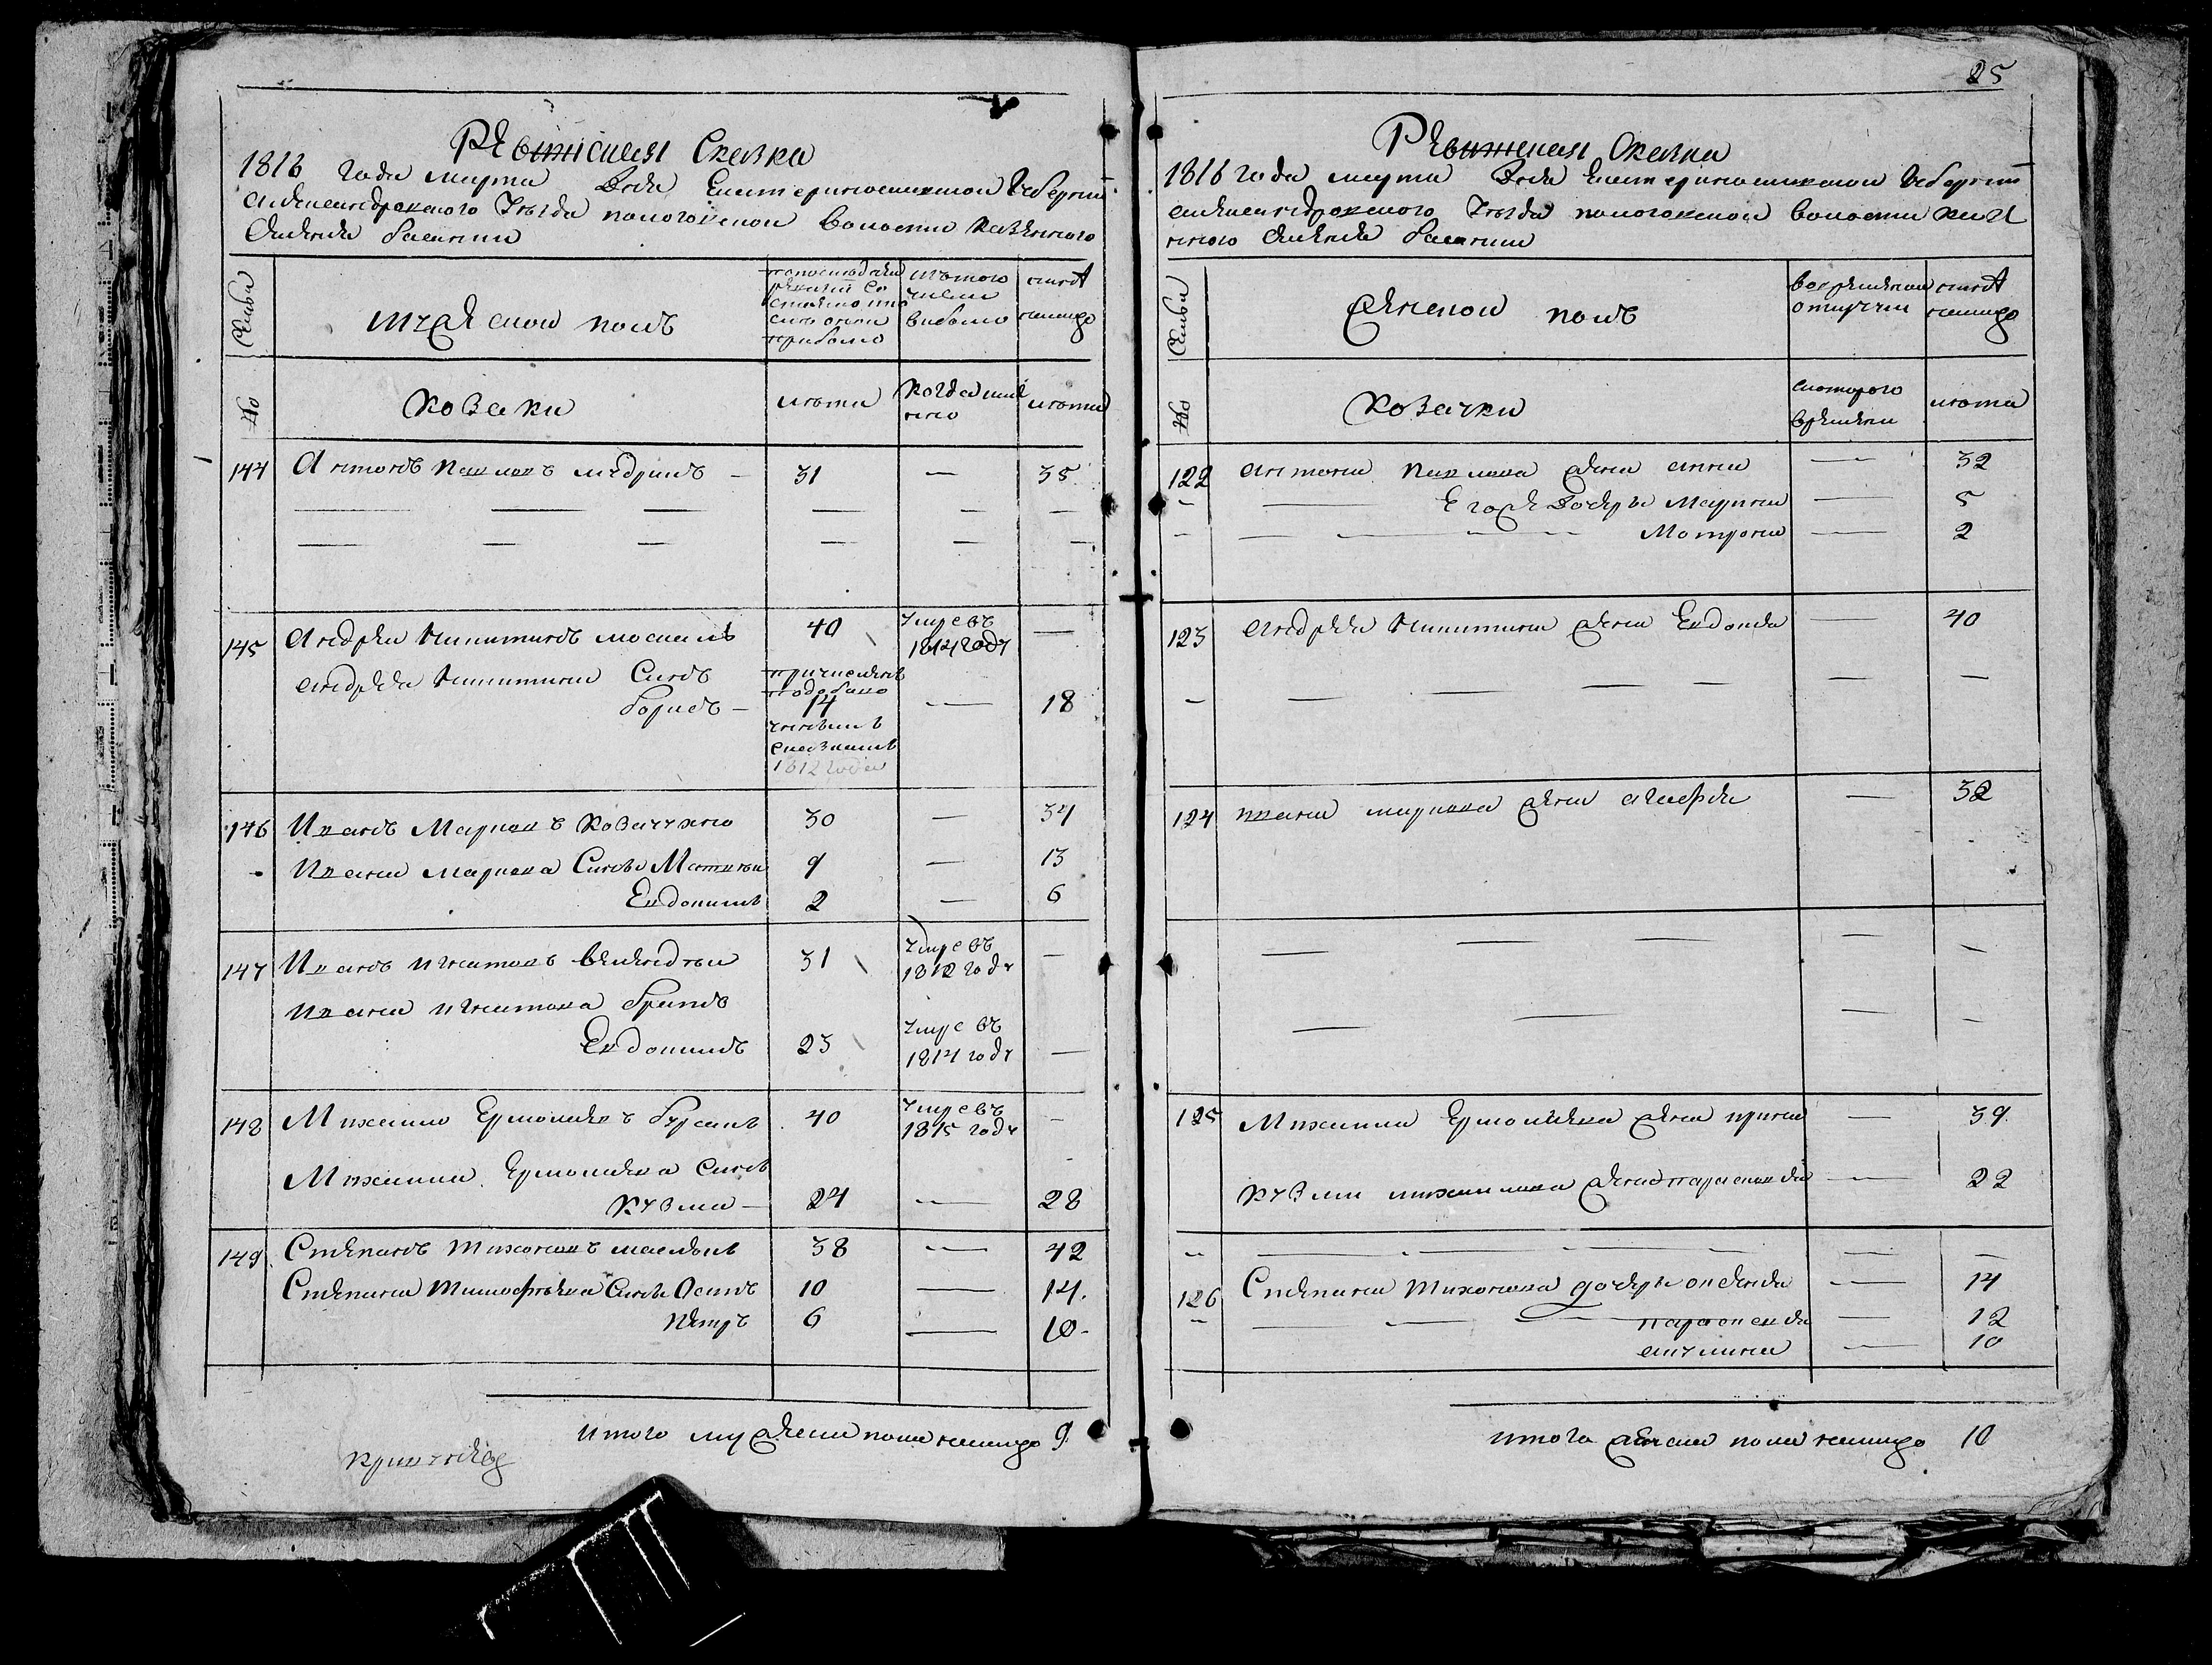 25
Ревизская Сказка
1816 года марта дня Екатеринославской Губернии
Александровского уезда пологовской волости казенного
селения
Семьи
мужеской полъ
по последней ревизии состояло и после оной прибыло
изъ того числа выбыло
ныне налицо
№
козаки
лета
когда имянно
лета
144 Антонъ павловъ 31 — 35
145 Андрей никитинъ москаль 40 умре въ 1814 году —
андрея никитина Сынъ
борисъ — 14 — 18
1812 года
146 Иванъ Марковъ 30 — 34
Ивана маркова Сыновья Матвей 9 — 13
Евдокимъ 2 — 6
147 Иванъ игнатовъ 31 умре въ 1812 году —
Ивана игнатова братъ
Евдокимъ 23 умре въ 1814 году —
148 Михайло Ермолаевъ 40 умре въ 1815 году —
Михайла Ермолаева Сынъ
кузма — 24 — 28
149 Степанъ тихоновъ 38 — 42
Степана Тимофеева Сыновья Осипъ 10 — 14
петръ 6 — 10
итого мужеска пола налицо 9
Ревизская Сказка
1816 года марта дня Екатеринославской Губернии
александровского уезда пологовской волости казен
ного селения
Семьи
женской полъ
во временной отлучки
ныне налицо
№
козачки
с которого времени
лета
122 антона павлова жена анна — 32
Его же дочеръ Марина — 5
Мотрона — 2
123 андрея никитина жена Евдокия — 40
124 ивана маркова жена агафия — 32
125 Михайла Ермолаева жена ирина — 39
кузмы михайлова жена параскевия — 22
126 Степана тихонова дочеръ — 14
параскевия — 12
акулина — 10
итого женска пола налицо 10